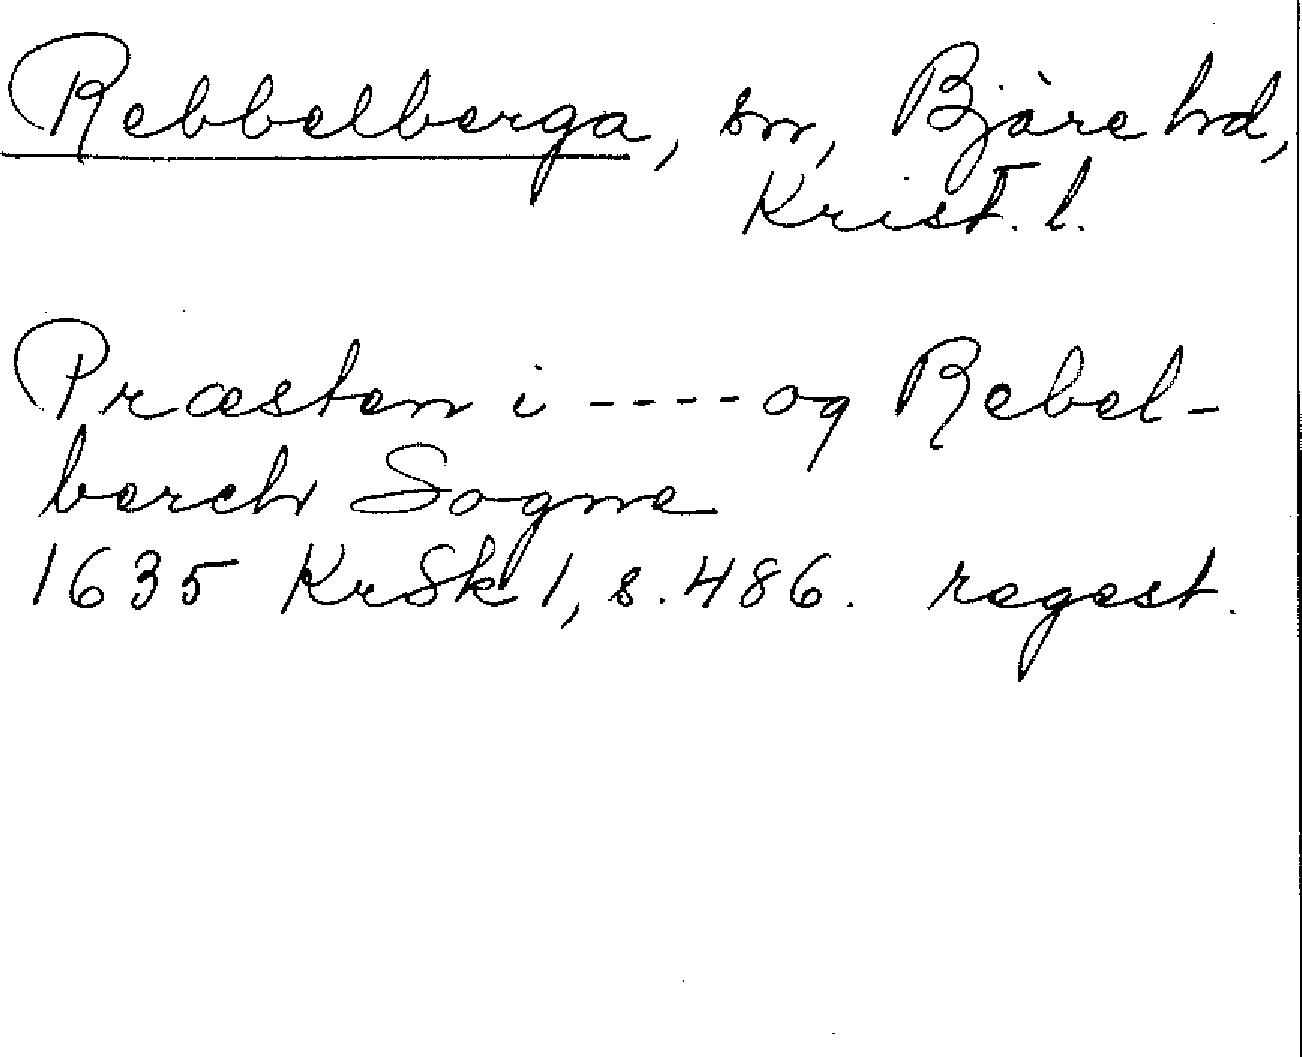 Rebbelberga, sn, Bjäre hd,
Krist. l.
Præsten i ---- og Rebel-
berch Sogne
1635 KrSk 1, s. 486. regest.